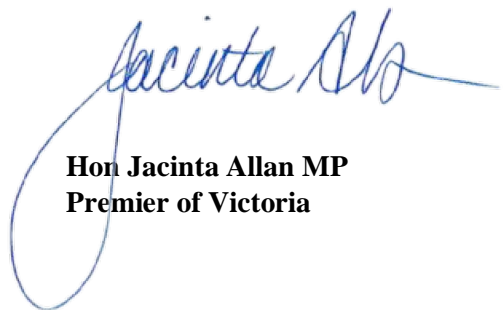 Jacinta
Hon Jacinta Allan MP
Premier of Victoria